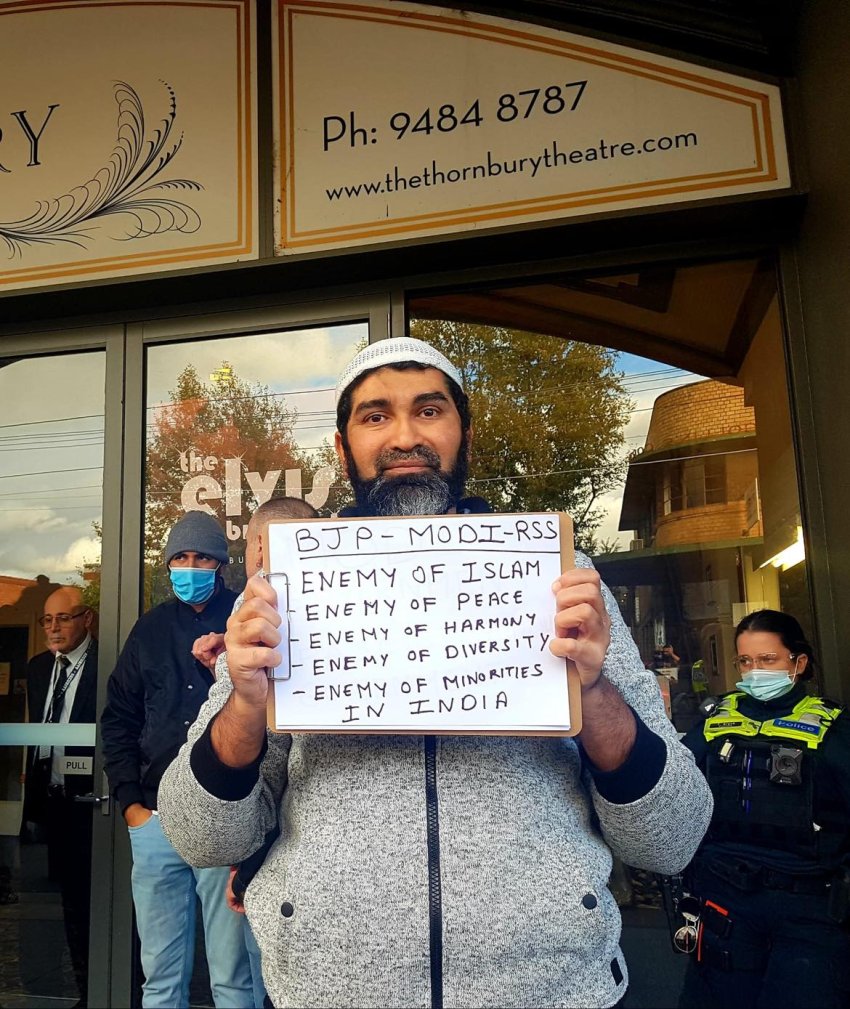 RY
Ph: 9484 8787
www.thethornburytheatre.com
the
elvis
PULL
BJP - MODI - RSS
- ENEMY OF ISLAM
- ENEMY OF PEACE
- ENEMY OF HARMONY
- ENEMY OF DIVERSITY
- ENEMY OF MINORITIES
IN INDIA
Police